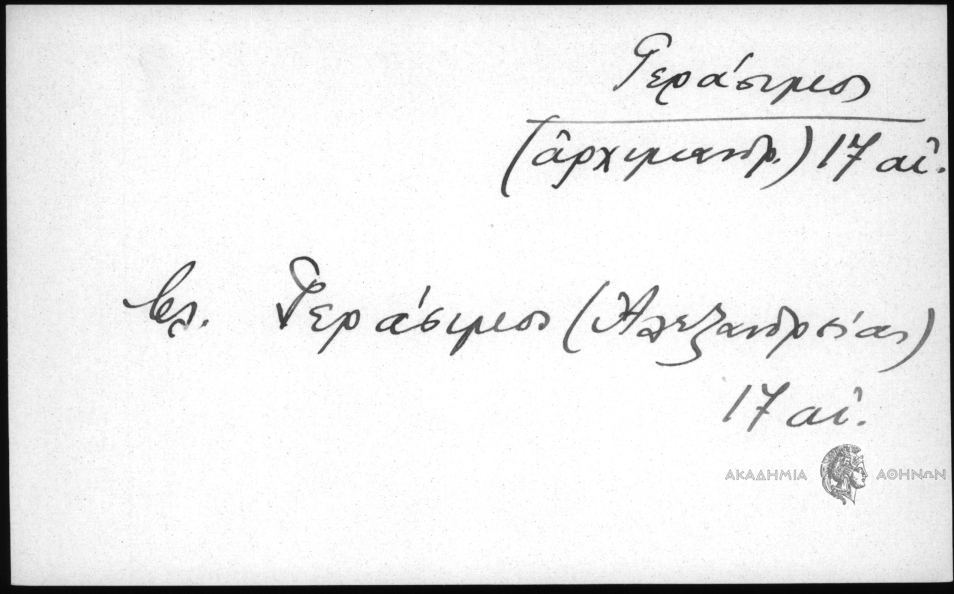 Γεράσιμος
(ἀρχιμανδρ.) 17 αἰ.
βλ. Γεράσιμος (Ἀλεξανδρείας)
17 αἰ.
ΑΚΑΔΗΜΙΑ ΑΘΗΝΩΝ